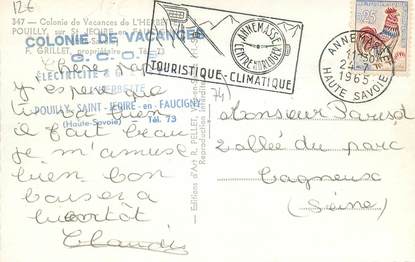 12€
347 - Colonie de Vacances de L'HERBETTE
POUILLY, sur St. JEOIRE
P. GRILLET, propriétaire Tél. 73
COLONIE DE VACANCES
G. C. O.
ELECTRICITE
L'HERBETTE
POUILLY SAINT-JEOIRE-en-FAUCIGNY
(Haute-Savoie) Tél. 73
Cher
j'espère que
tu vas bien
il fait beau
je m'amuse
bien bon
baiser à
bientôt
Claudie
Editions d'Art R. PELLET
Reproduction interdite
ANNEMASSE
CENTRE
TOURISTIQUE-CLIMATIQUE
74
ANNEMASSE
24-7
1965
HAUTE SAVOIE
0,25
Monsieur Parisot
2 allée du parc
Bagneux
(Seine)